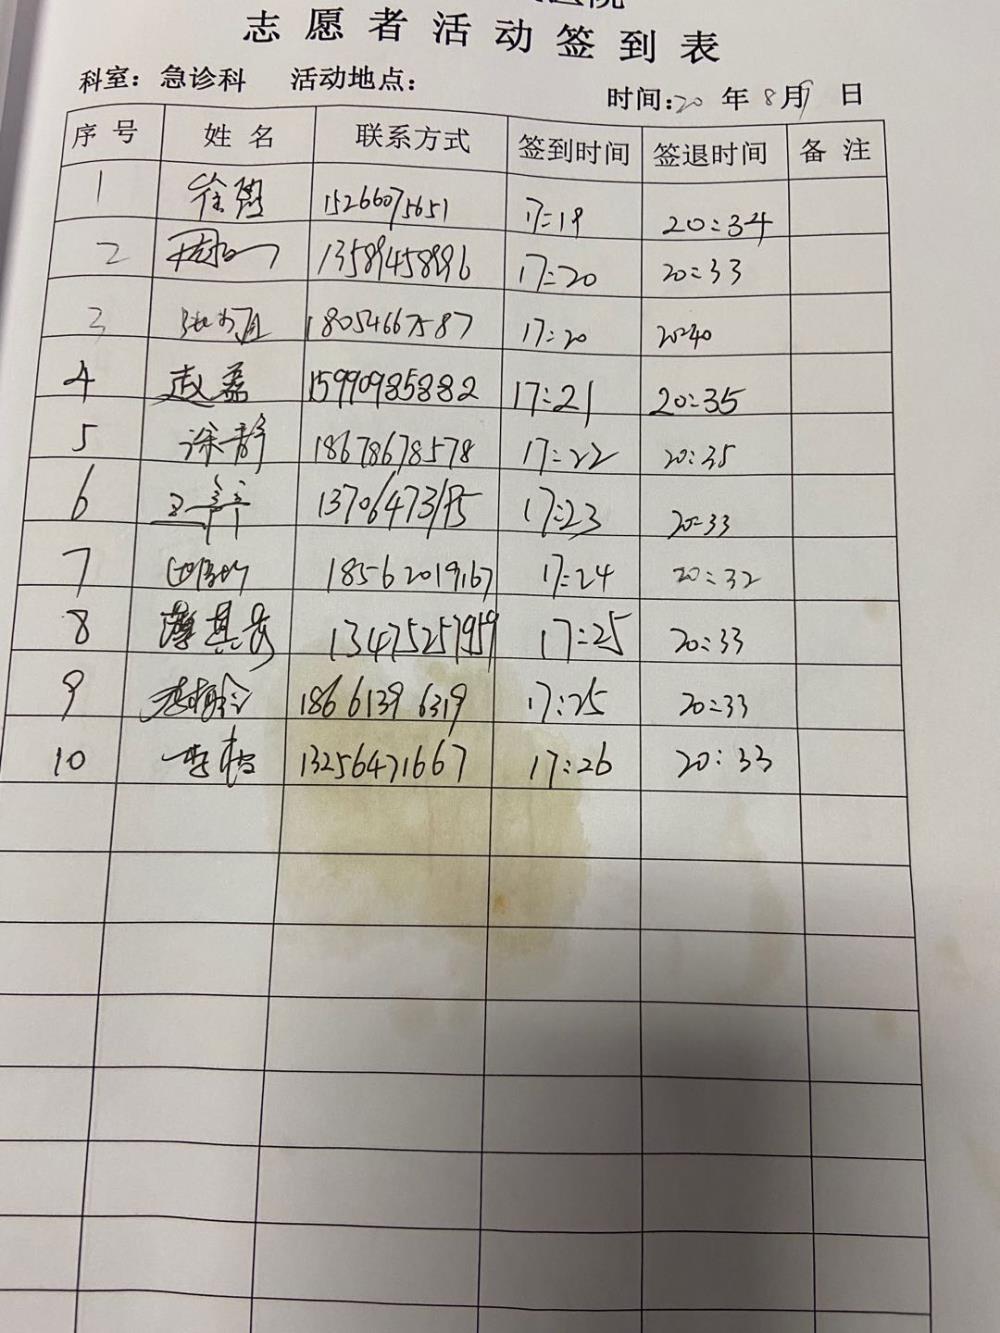 志愿者活动签到表
科室：急诊科 活动地点：
时间：20 年 8月9 日
序号 姓名 联系方式 签到时间 签退时间 备注
1 徐 15266075651 17:19 20:34
2 17:20 20:33
3 18054667587 17:20 20:40
4 赵磊 15990985882 17:21 20:35
5 涂静 18678678578 17:22 20:35
6 17:23 20:33
7 18562019167 17:24 20:32
8 13475257959 17:25 20:33
9 18661396319 17:25 20:33
10 李 13256471667 17:26 20:33